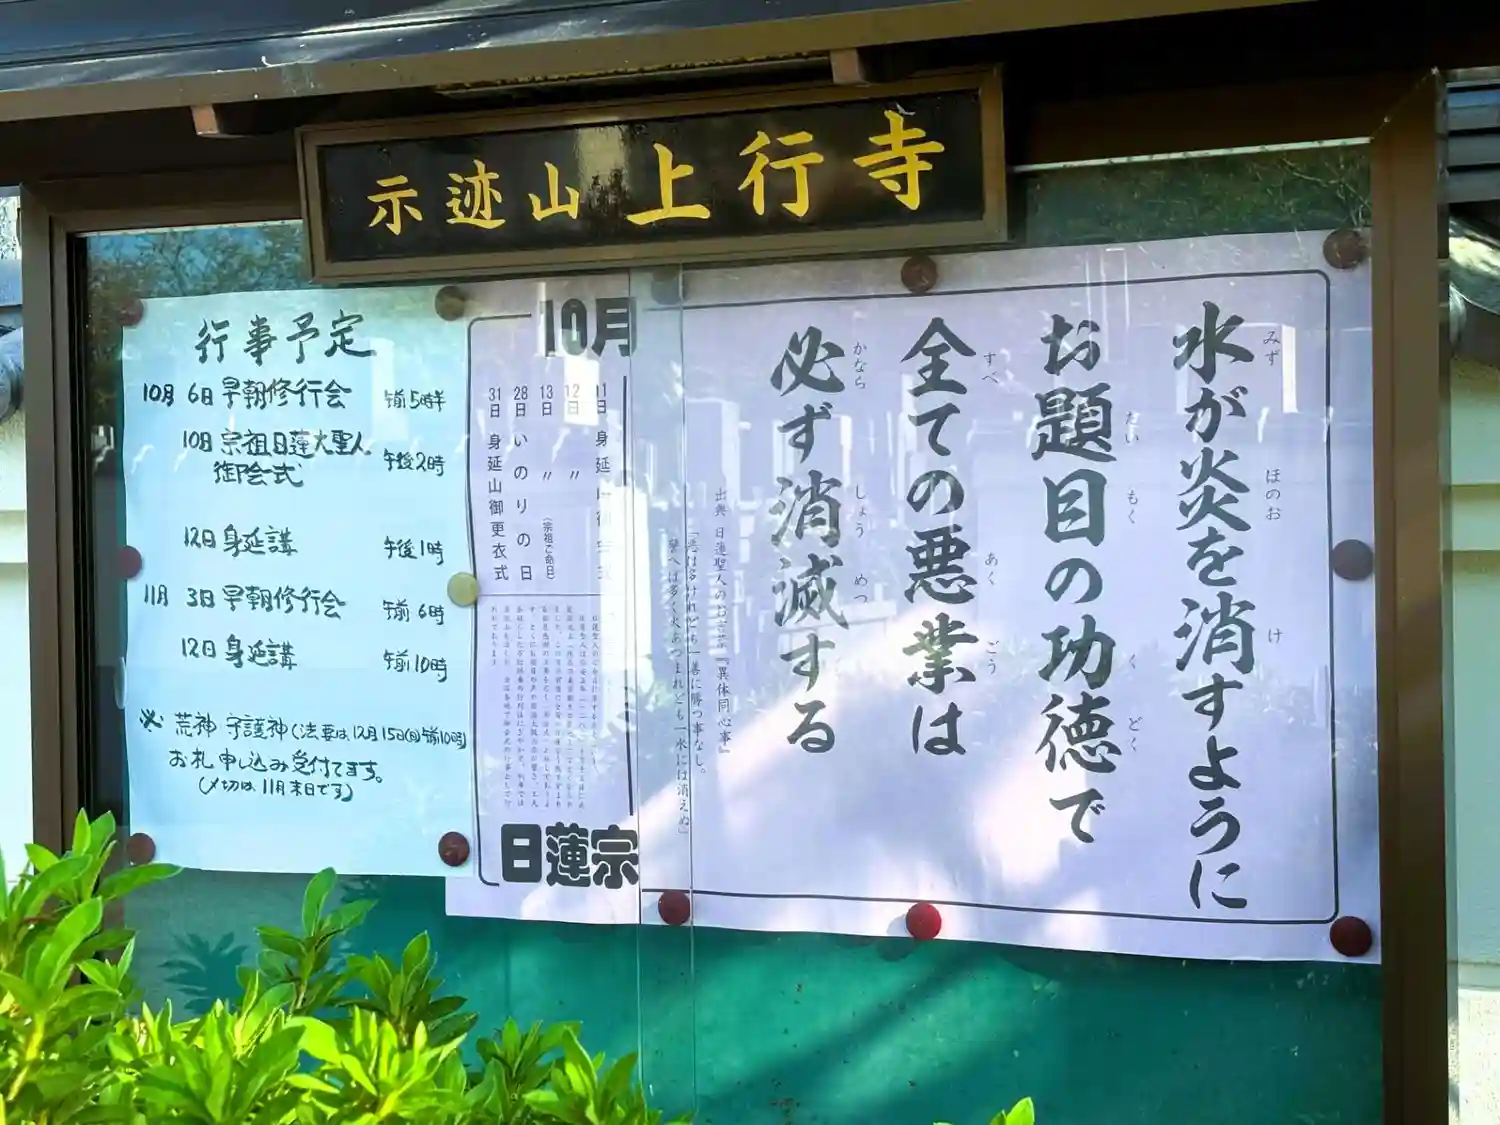 示迹山 上行寺
行事予定
10月 6日 早朝修行会 午前5時半
10日 宗祖日蓮大聖人 午後2時
御会式
12日 身延講 午後1時
11月 3日 早朝修行会 午前6時
12日 身延講 午前10時
※ 荒神 守護神(法要は、12月15日(日)午前10時)
お札申し込み受付てます。
(〆切は、11月末日です)
水が炎を消すように
みず ほのお け
お題目の功徳で
だい もく く どく
全ての悪業は
すべ あく ごう
必ず消滅する
かなら しょう めつ
出典 日蓮聖人のお言葉『異体同心事』
「悪は多けれども一善に勝つ事なし。
譬へば多く火あつまれども一水には消えぬ」
10月
11日 身延山
12日 〃
13日 〃 (宗祖ご命日)
28日 いのりの日
31日 身延山御更衣式
日蓮宗